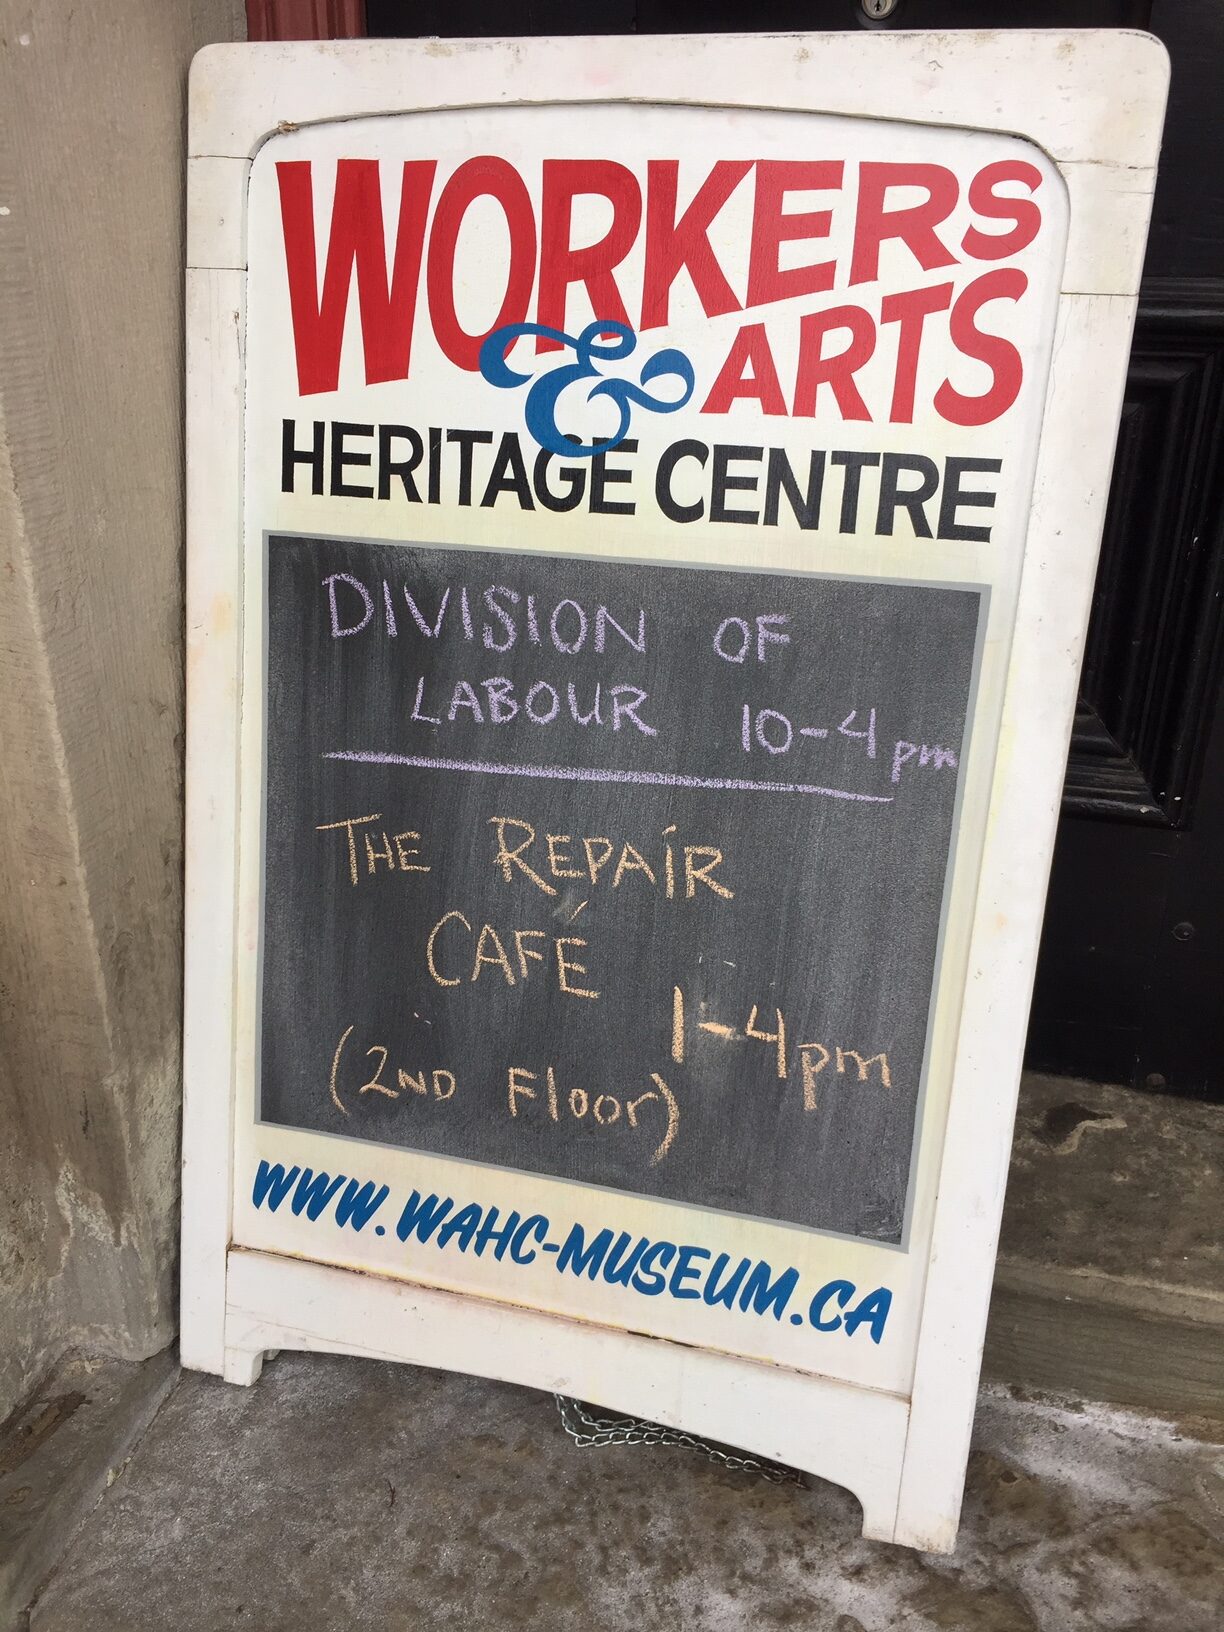 WORKERS
& ARTS
HERITAGE CENTRE
DIVISION OF
LABOUR 10-4pm
THE REPAIR
CAFÉ
1-4pm
(2ND FLOOR)
WWW.WAHC-MUSEUM.CA